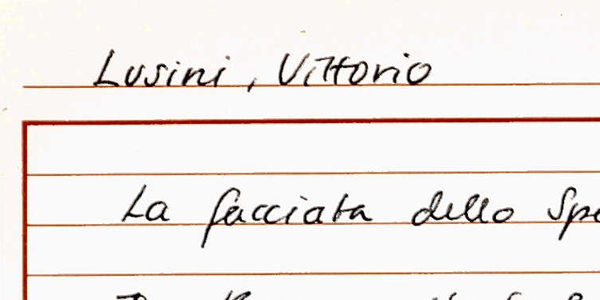 Lusini, Vittorio
La facciata dello Spe